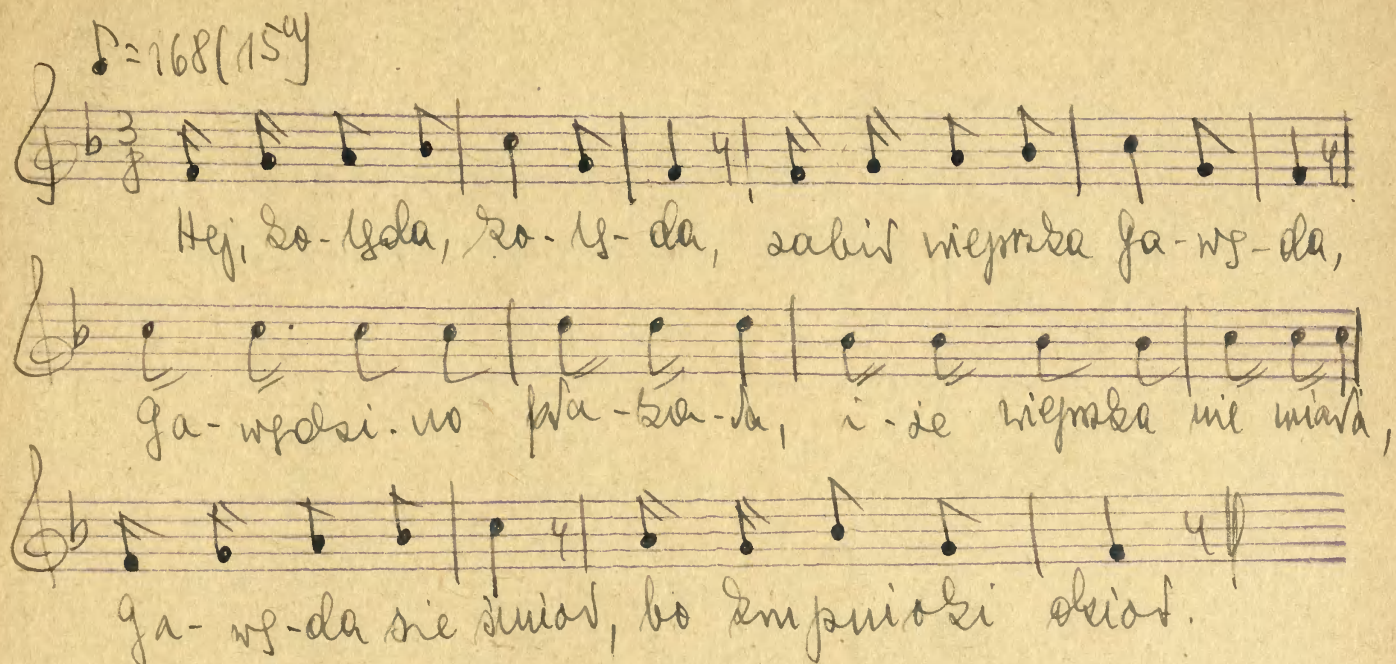 ♪=168 (15")
3/8
Hej, ko-lęda, ko-lę-da, zabił wieprzka Ga-wę-da,
Ga-wędzi-no płа-ka-ła, i-że wieprzka nie miała,
Ga-wę-da sie śmioł, bo krupnioki dzioł.